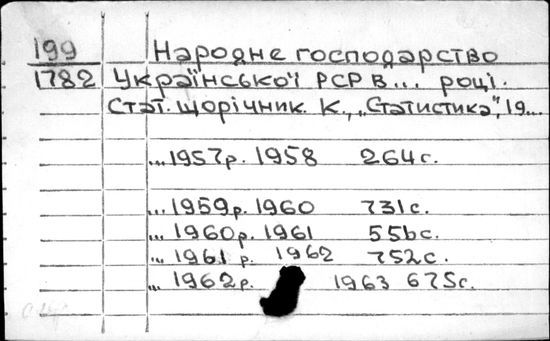 199 Народне господарство
1782 Української РСР в... році.
Стат. щорічник. К., „Статистика", 19...
...1957р. 1958 264с.
...1959р. 1960 731с.
...1960р. 1961 556с.
...1961р. 1962 752с.
...1962р. 1963 675с.